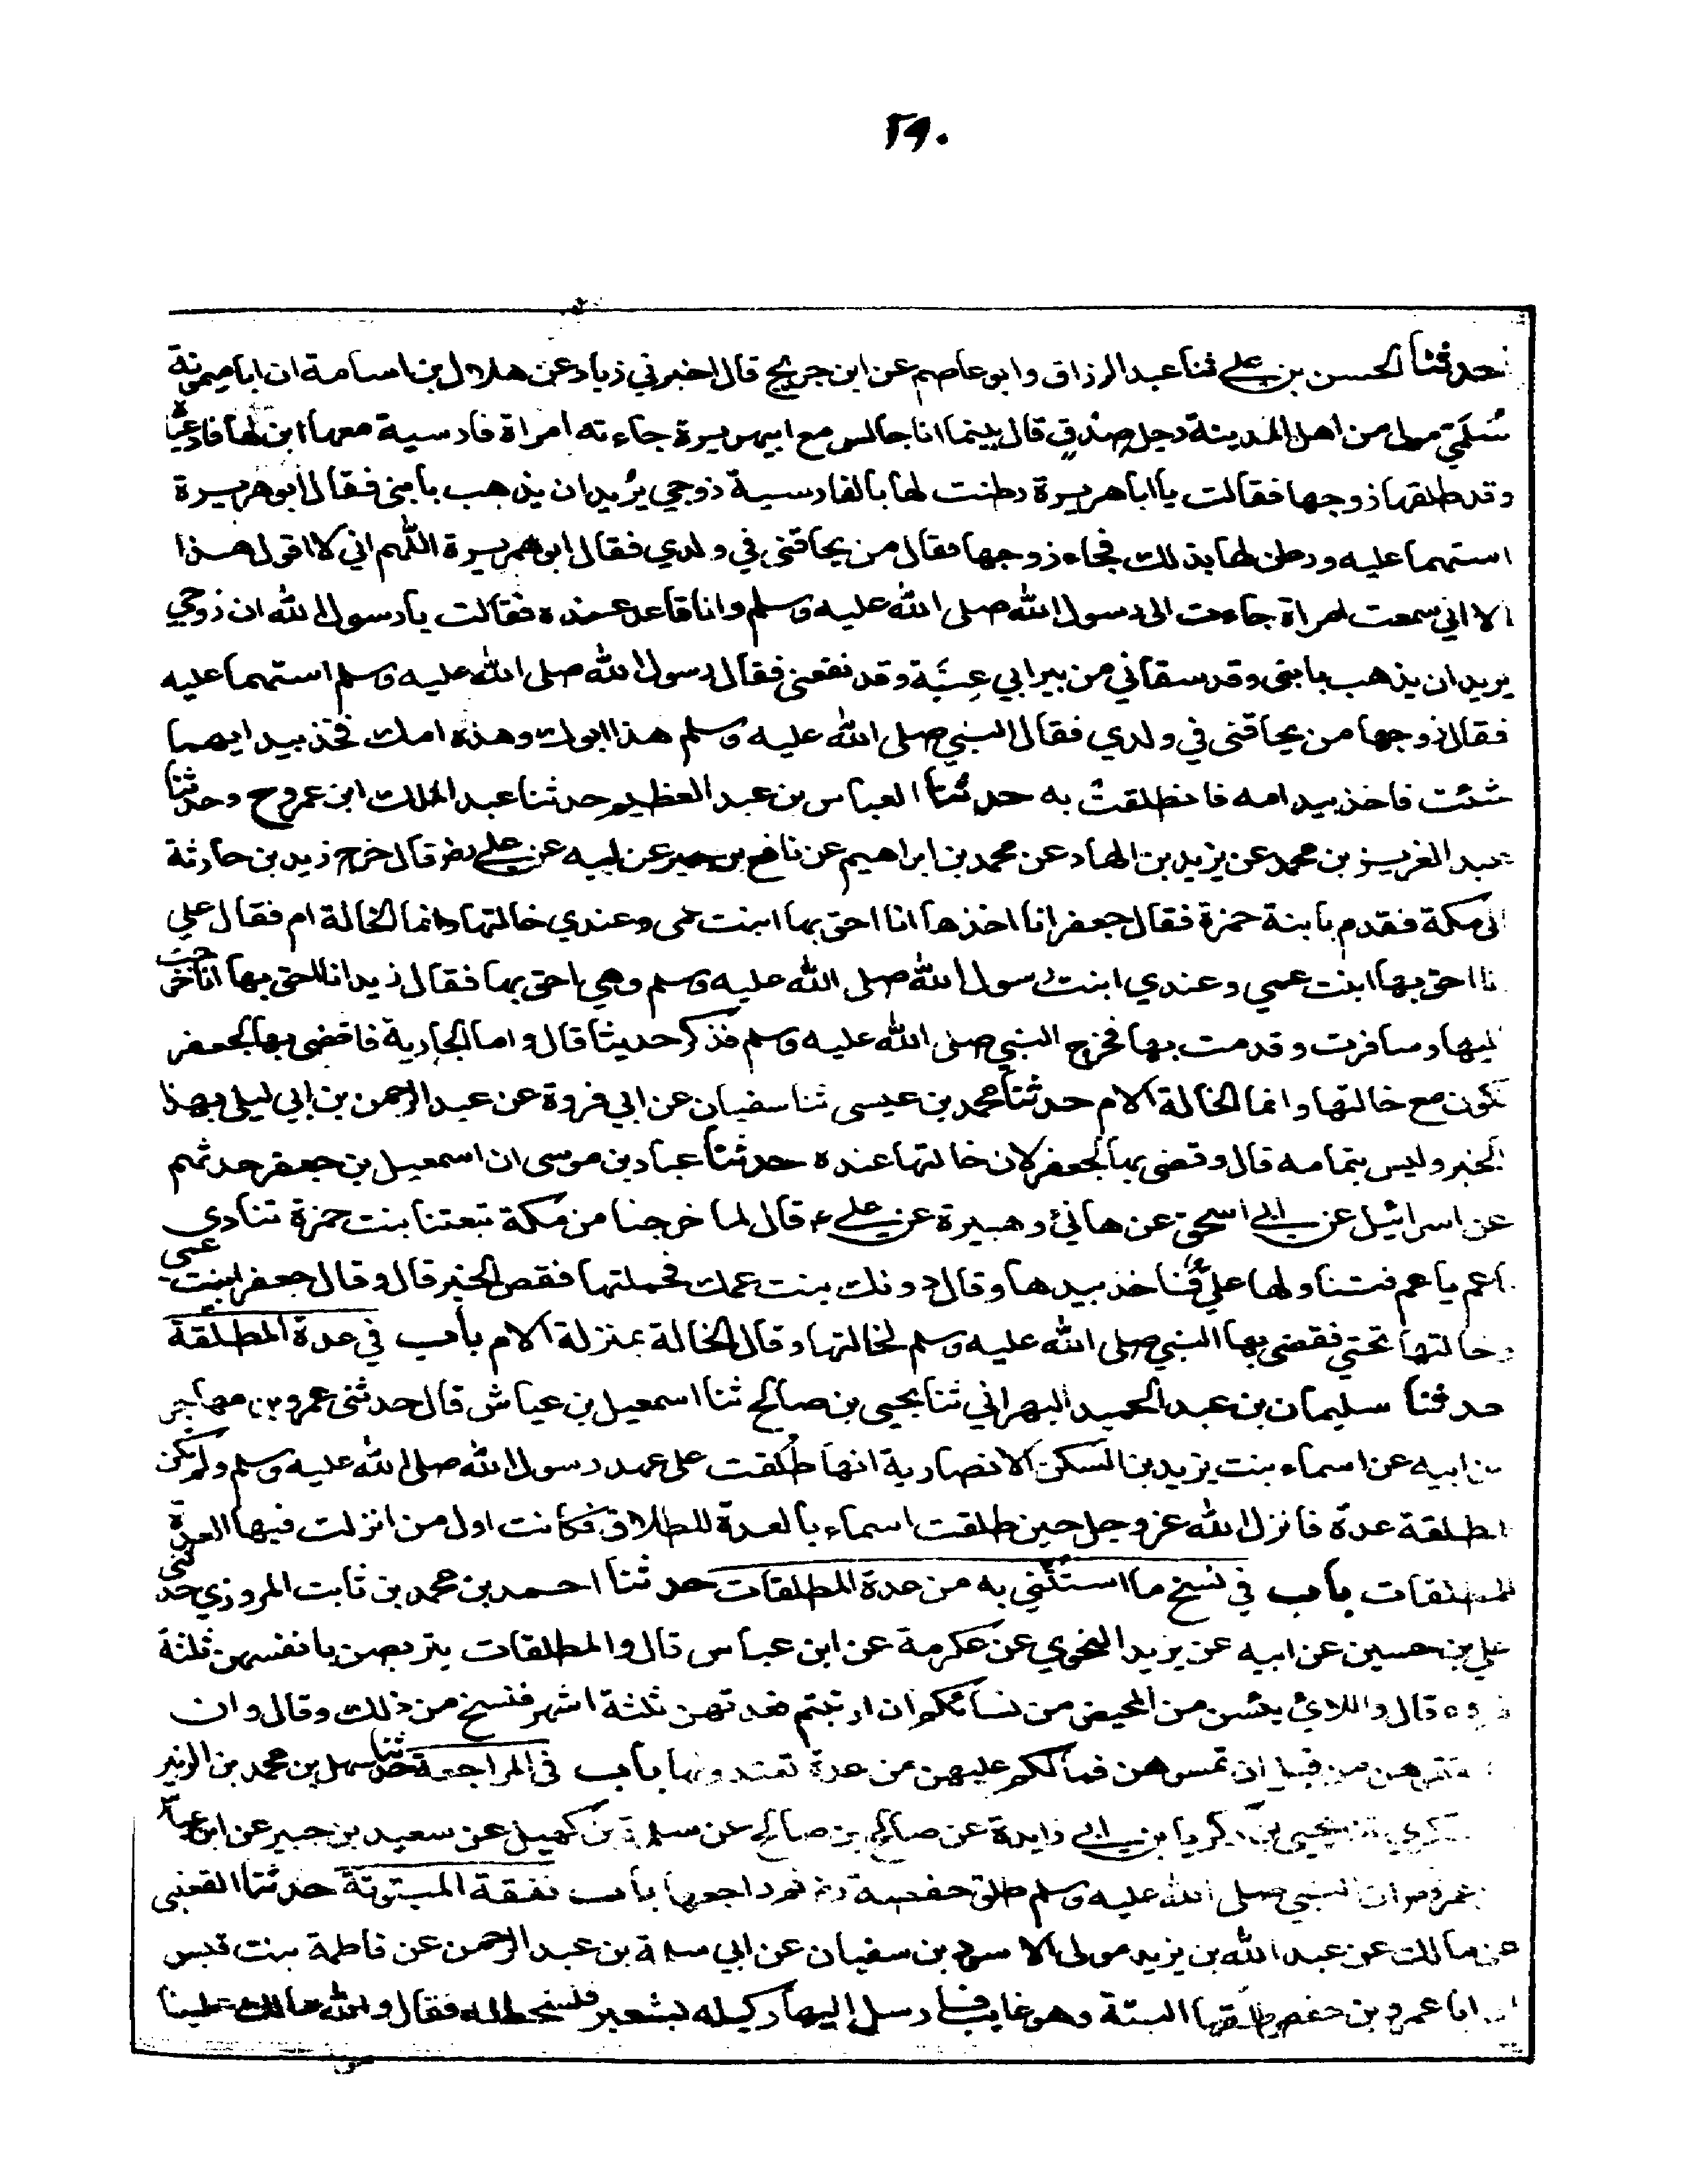 ٢٩٠
حدثنا الحسن بن علي ثنا عبد الرزاق وابو عاصم عن ابن جريج قال اخبرني زياد عن هلال بن اسامة ان ابا ميمونة
سُلمَي مولى من اهل المدينة رجل صدق قال بينما انا جالس مع ابي هريرة جاءته امراة فارسية معها ابن لها فادعياه
وقد طلقها زوجها فقالت يا ابا هريرة رطنت لها بالفارسية زوجي يُريد ان يذهب بابني فقال ابو هريرة
استهما عليه ورطن لها بذلك فجاء زوجها فقال من يحاقني في ولدي فقال ابو هريرة اللهم اني لا اقول هذا
الا اني سمعت امراة جاءت الى رسول الله صلى الله عليه وسلم وانا قاعد عنده فقالت يا رسول الله ان زوجي
يريد ان يذهب بابني وقد سقاني من بير ابي عِنَبَة وقد نفعني فقال رسول الله صلى الله عليه وسلم استهما عليه
فقال زوجها من يحاقني في ولدي فقال النبي صلى الله عليه وسلم هذا ابوك وهذه امك فخذ بيد ايهما
شئت فاخذ بيد امه فانطلقت به حدثنا العباس بن عبد العظيم حدثنا عبد الملك ابن عمرو ح وحدثنا
عبد العزيز بن محمد عن يزيد بن الهاد عن محمد بن ابراهيم عن نافع بن جبير عن ابيه عن علي رض قال خرج زيد بن حارثة
الى مكة فقدم بابنة حمزة فقال جعفر انا اخذها انا احق بها ابنت عمي وعندي خالتها وانما الخالة ام فقال علي
انا احق بها ابنت عمي وعندي ابنت رسول الله صلى الله عليه وسلم وهي احق بها فقال زيد انا احق بها انا خرجت
اليها وسافرت وقدمت بها فخرج النبي صلى الله عليه وسلم فذكر حديثا قال واما الجارية فاقضى بها لجعفر
تكون مع خالتها وانما الخالة الام حدثنا محمد بن عيسى ثنا سفيان عن ابي فروة عن عبد الرحمن بن ابي ليلى بهذا
الخبر وليس بتمامه قال وقضى بها لجعفر لان خالتها عنده حدثنا عباد بن موسى ان اسمعيل بن جعفر حدثهم
عن اسرائيل عن ابي اسحق عن هانئ وهبيرة عن علي قال لما خرجنا من مكة تبعتنا بنت حمزة تنادي
ياعم ياعم فتناولها علي فاخذ بيدها وقال دونك بنت عمك فحملتها فقص الخبر قال وقال جعفر ابنت عمي
وخالتها تحتي فقضى بها النبي صلى الله عليه وسلم لخالتها وقال الخالة بمنزلة الام باب في عدة المطلقة
حدثنا سليمان بن عبد الحميد البهراني ثنا يحيى بن صالح ثنا اسمعيل بن عياش قال حدثنى عمرو بن مهاجر
عن ابيه عن اسماء بنت يزيد بن السكن الانصارية انها طُلقت على عهد رسول الله صلى الله عليه وسلم ولم يكن
للمطلقة عدة فانزل الله عز وجل حين طلقت اسماء بالعدة للطلاق فكانت اول من انزلت فيها العدة
للمطلقات باب في نسخ ما استُثني به من عدة المطلقات حدثنا احمد بن محمد بن ثابت المروزي حدثني
علي بن حسين عن ابيه عن يزيد النحوي عن عكرمة عن ابن عباس قال والمطلقات يتربصن بانفسهن ثلثة
قروء قال واللائ يئسن من المحيض من نسائكم ان ارتبتم فعدتهن ثلثة اشهر فنسخ من ذلك وقال وان
طلقتموهن من قبل ان تمسوهن فما لكم عليهن من عدة تعتدونها باب في المراجعة حدثنا سهل بن محمد بن الزبير
العسكري ثنا يحيى بن زكريا بن ابي زايدة عن صالح بن صالح عن سلمة بن كهيل عن سعيد بن جبير عن ابن عباس
عن عمر رض ان النبي صلى الله عليه وسلم طلق حفصة رض ثم راجعها باب نفقة المبتوتة حدثنا القعنبي
عن مالك عن عبد الله بن يزيد مولى الاسود بن سفيان عن ابي سلمة بن عبد الرحمن عن فاطمة بنت قيس
ان ابا عمرو بن حفص طلقها البتة وهو غايب فارسل اليها وكيله بشعير فتسخطله فقال والله مالك علينا